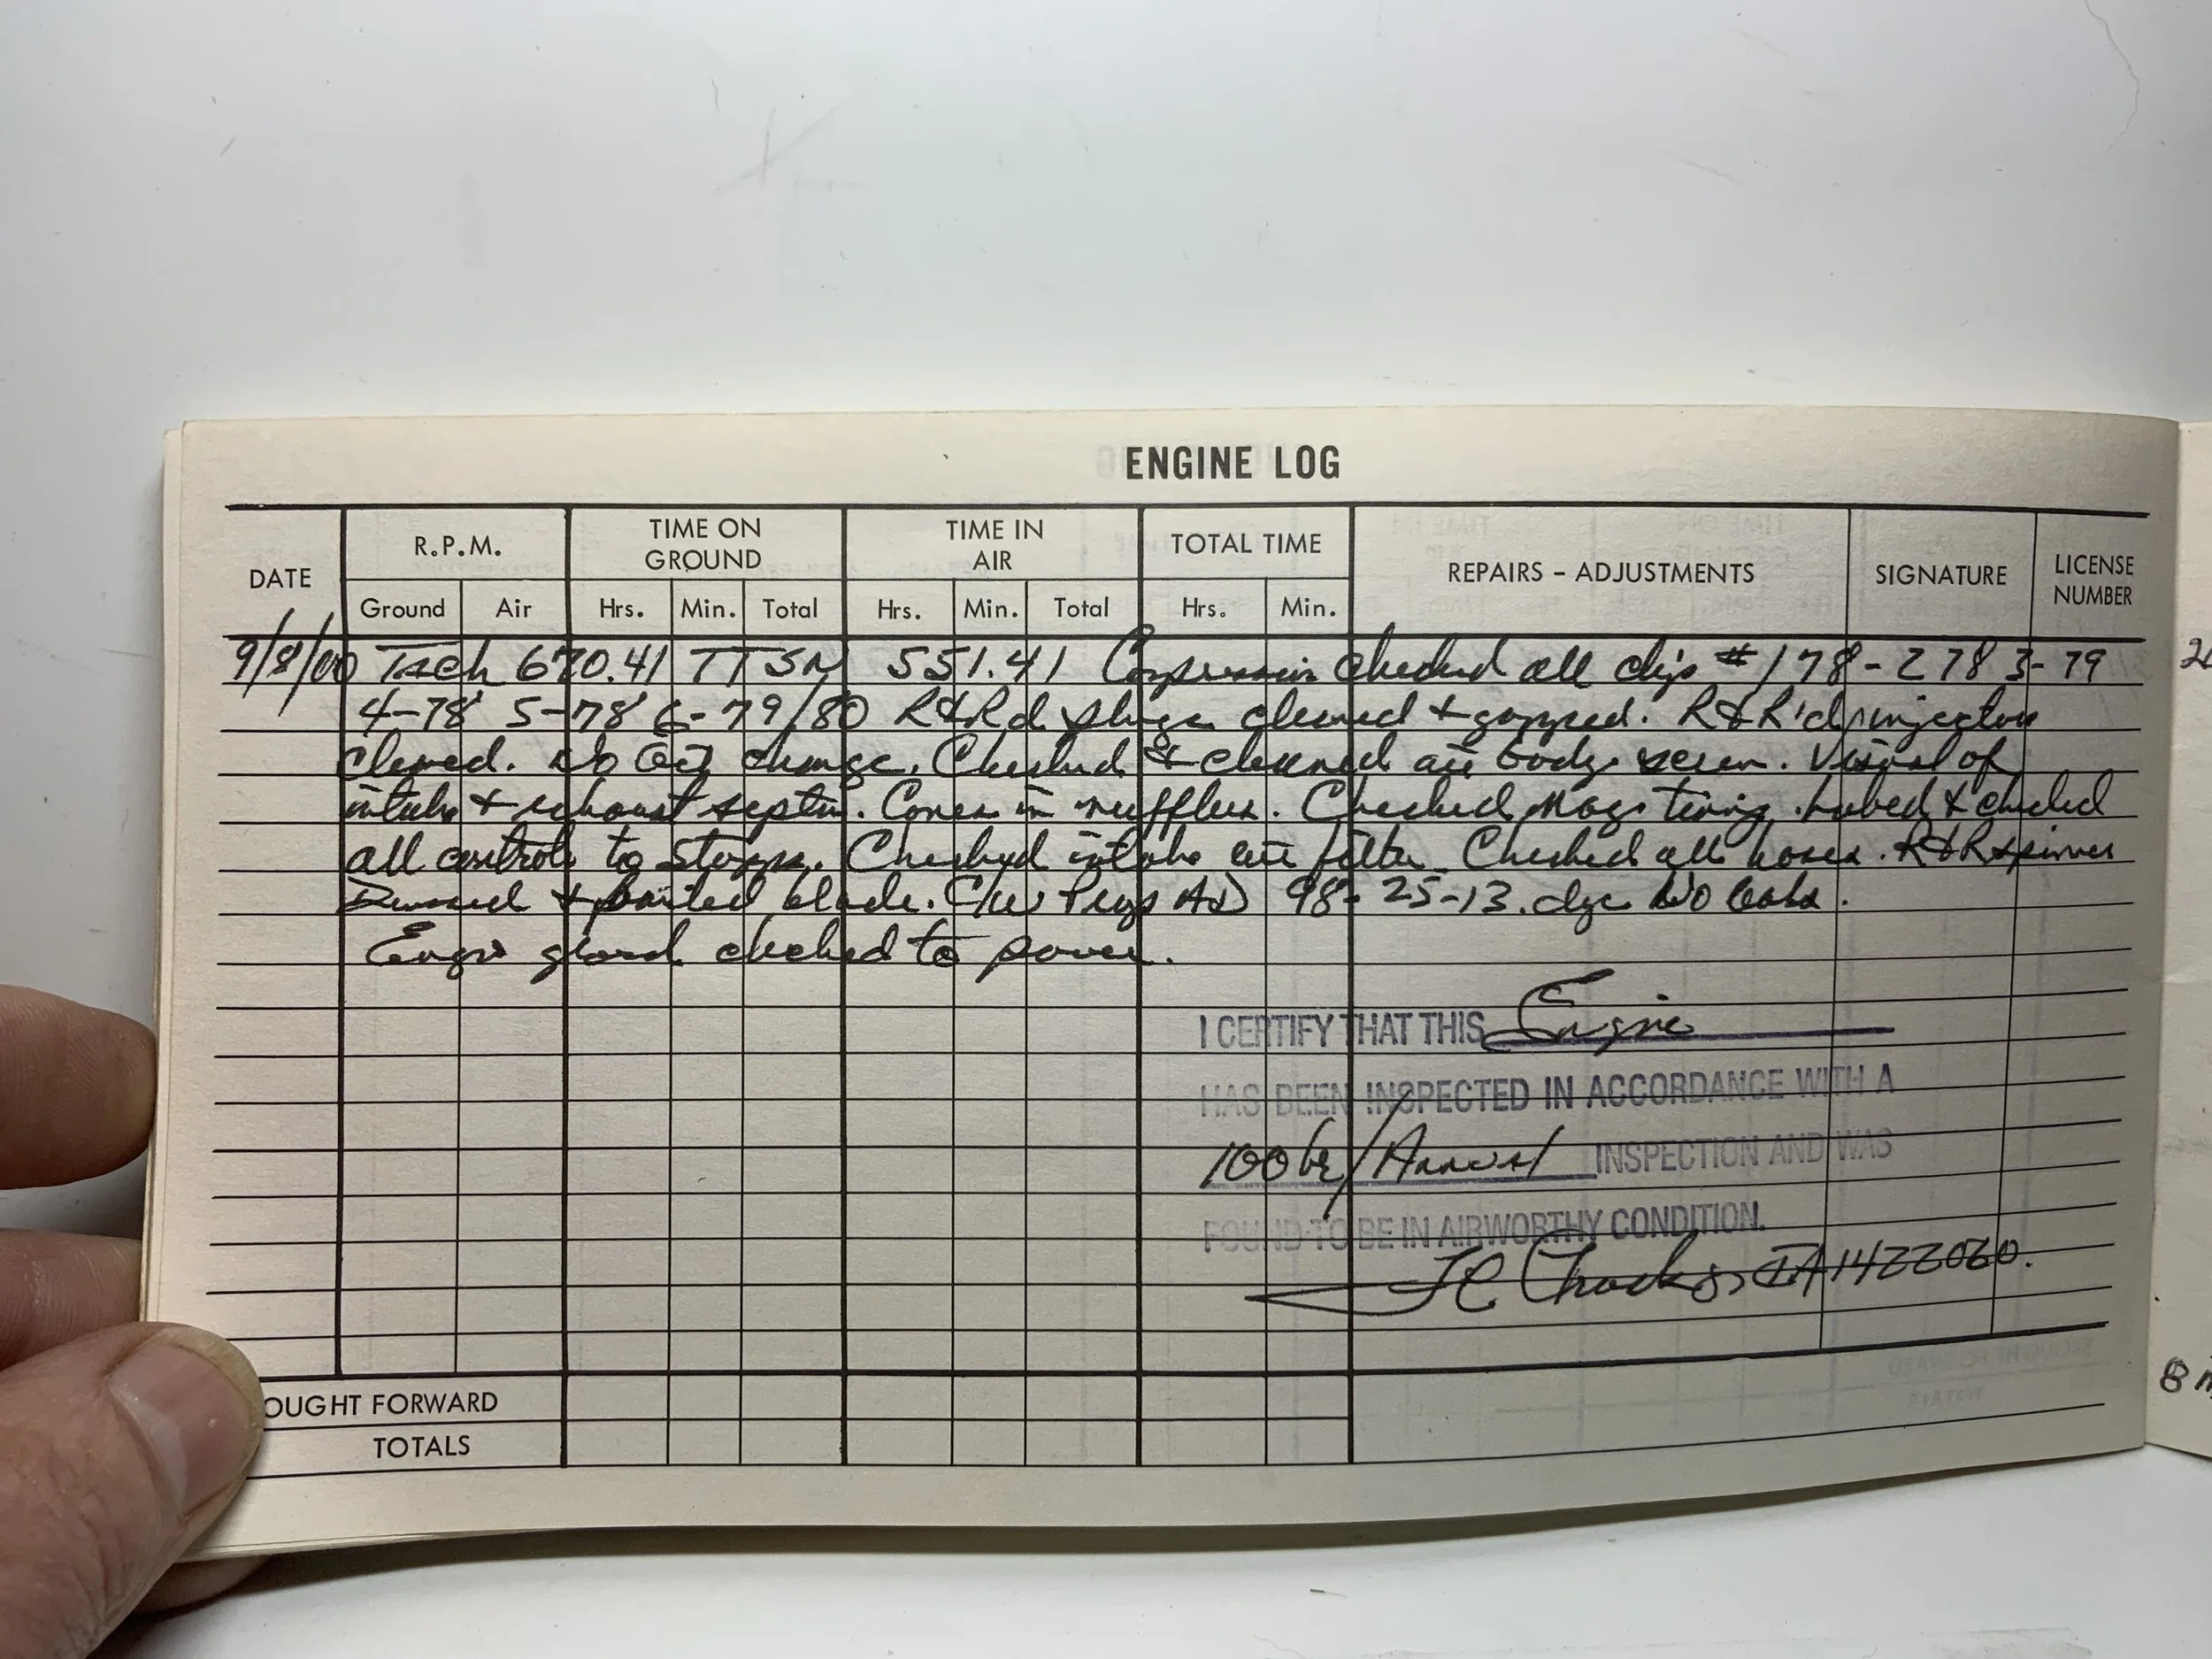 ENGINE LOG
DATE
R.P.M.
TIME ON GROUND
TIME IN AIR
TOTAL TIME
REPAIRS - ADJUSTMENTS
SIGNATURE
LICENSE NUMBER
Ground Air Hrs. Min. Total Hrs. Min. Total Hrs. Min.
9/8/00 Tach 670.41 TTSN 551.41 Compression checked all #1 78 - 2 78 3-79
4-78 5-78 6-79/80 R&Rd plugs cleaned + gapped. R&R'd injectors
cleaned. No Oil change. Checked & cleaned air body screen. Visual of
intake + exhaust system. Cones in mufflers. Checked Mag timing. Lubed & checked
all controls to stops. Checked intake air filter. Checked all hoses. R&R spinner
Dressed + painted blade. C/W Prop AD 98-25-13. No leaks.
Engine ground checked to power.
I CERTIFY THAT THIS Engine
HAS BEEN INSPECTED IN ACCORDANCE WITH A
100 hr/Annual INSPECTION AND WAS
FOUND TO BE IN AIRWORTHY CONDITION.
IA1422060.
OUGHT FORWARD
TOTALS